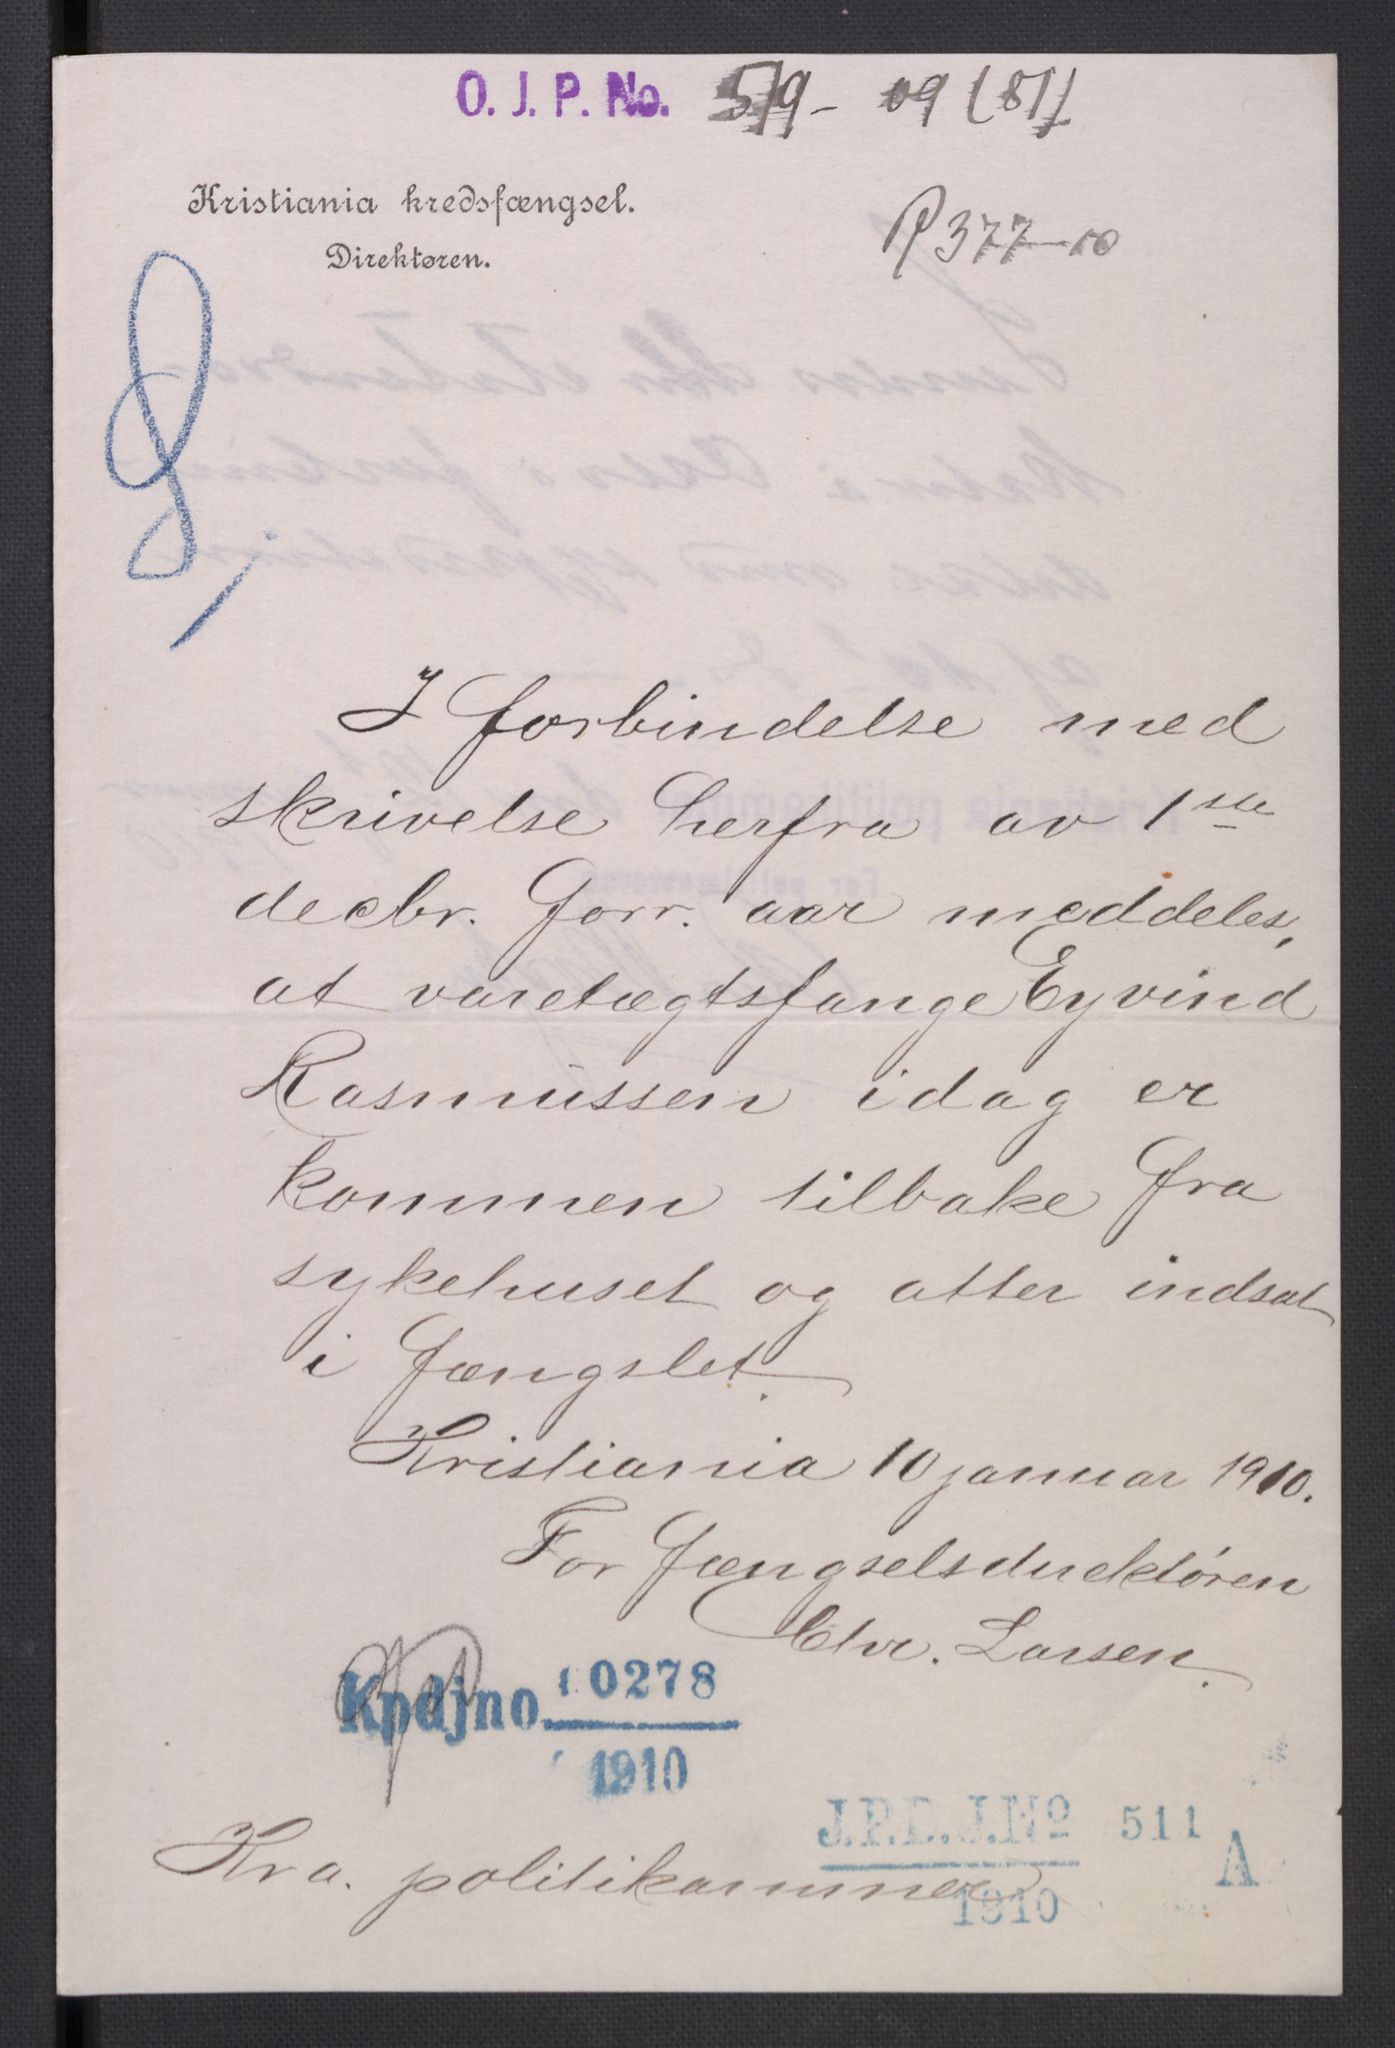 O. J. P. No. 519 - 09 (81)
Kristiania kredsfængsel.
Direktøren.
P 377-10
I forbindelse med
skrivelse herfra av 1ste
decbr. forr. aar meddeles,
at varetægtsfange Eyvind
Rasmussen idag er
kommen tilbake fra
sykehuset og atter indsat
i fængslet.
Kristiania 10 januar 1910.
For fængselsdirektøren
Chr. Larsen.
Kpdjno 0278
1910
J.P.D.J.No 511 A
1910
Kra. politikammer